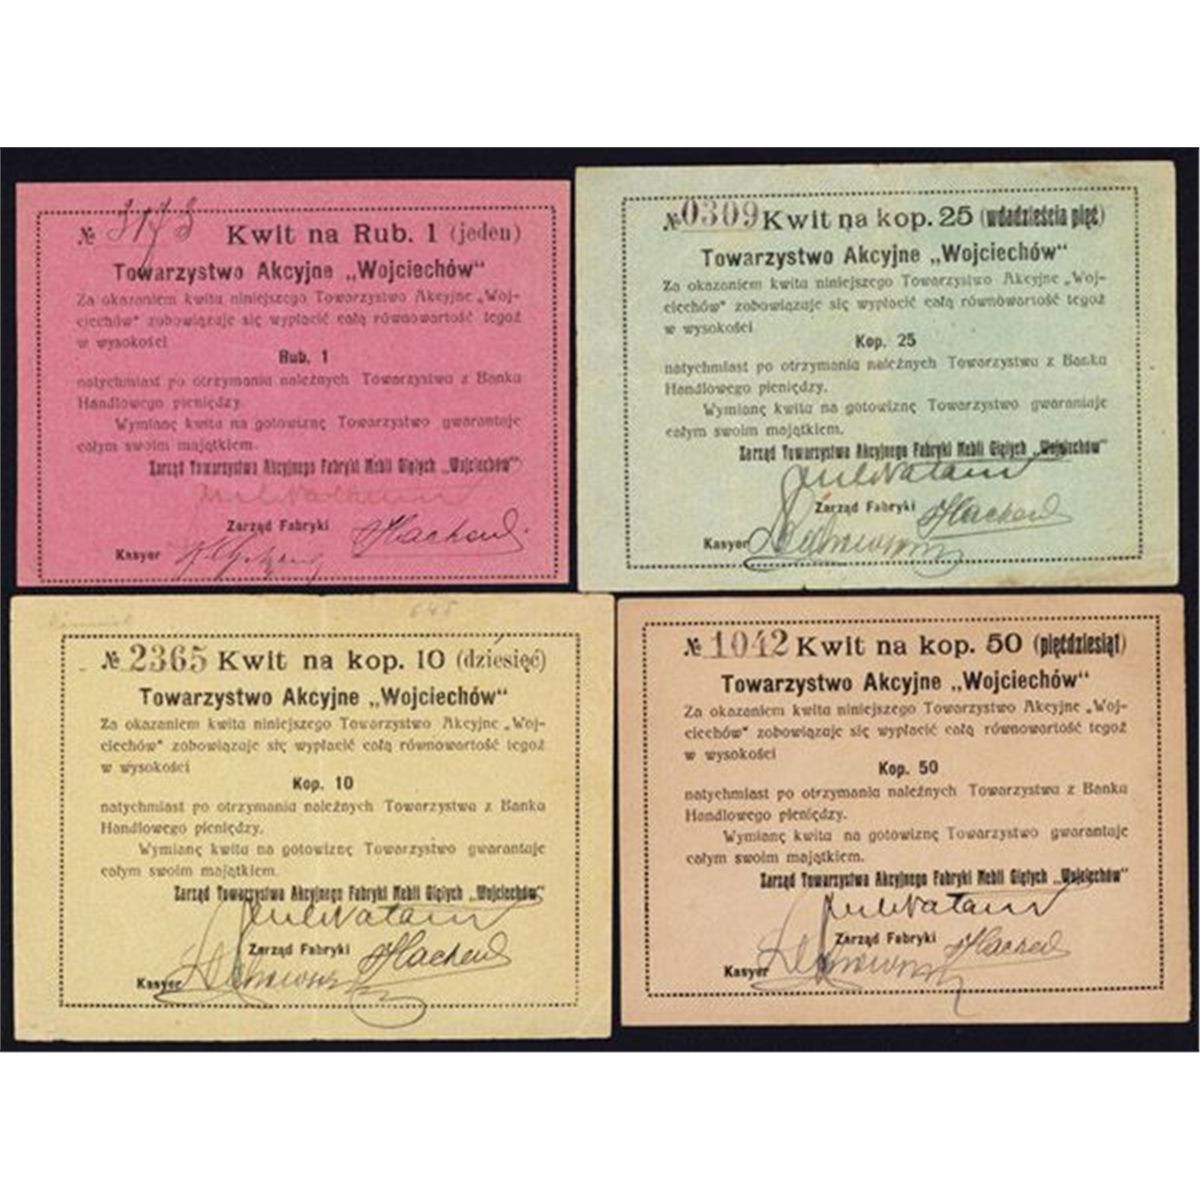 № 3173 Kwit na Rub. 1 (jeden)
Towarzystwo Akcyjne „Wojciechów“
Za okazaniem kwitu niniejszego Towarzystwo Akcyjne „Woj-
ciechów“ zobowiązuje się wypłacić całą równowartość tegoż
w wysokości
Rub. 1
natychmiast po otrzymaniu należnych Towarzystwu z Banku
Handlowego pieniędzy.
Wymianę kwitu na gotowiznę Towarzystwo gwarantuje
całym swoim majątkiem.
Zarząd Towarzystwa Akcyjnego Fabryki Mebli Giętych „Wojciechów“
Zarząd Fabryki
Kasyer
№ 0309 Kwit na kop. 25 (wdadzieścia pięć)
Towarzystwo Akcyjne „Wojciechów“
Za okazaniem kwitu niniejszego Towarzystwo Akcyjne „Woj-
ciechów“ zobowiązuje się wypłacić całą równowartość tegoż
w wysokości
Kop. 25
natychmiast po otrzymaniu należnych Towarzystwu z Banku
Handlowego pieniędzy.
Wymianę kwitu na gotowiznę Towarzystwo gwarantuje
całym swoim majątkiem.
Zarząd Towarzystwa Akcyjnego Fabryki Mebli Giętych „Wojciechów“
Zarząd Fabryki
Kasyer
645
№ 2365 Kwit na kop. 10 (dziesięć)
Towarzystwo Akcyjne „Wojciechów“
Za okazaniem kwitu niniejszego Towarzystwo Akcyjne „Woj-
ciechów“ zobowiązuje się wypłacić całą równowartość tegoż
w wysokości
Kop. 10
natychmiast po otrzymaniu należnych Towarzystwu z Banku
Handlowego pieniędzy.
Wymianę kwitu na gotowiznę Towarzystwo gwarantuje
całym swoim majątkiem.
Zarząd Towarzystwa Akcyjnego Fabryki Mebli Giętych „Wojciechów“
Zarząd Fabryki
Kasyer
№ 1042 Kwit na kop. 50 (pięćdziesiąt)
Towarzystwo Akcyjne „Wojciechów“
Za okazaniem kwitu niniejszego Towarzystwo Akcyjne „Woj-
ciechów“ zobowiązuje się wypłacić całą równowartość tegoż
w wysokości
Kop. 50
natychmiast po otrzymaniu należnych Towarzystwu z Banku
Handlowego pieniędzy.
Wymianę kwitu na gotowiznę Towarzystwo gwarantuje
całym swoim majątkiem.
Zarząd Towarzystwa Akcyjnego Fabryki Mebli Giętych „Wojciechów“
Zarząd Fabryki
Kasyer